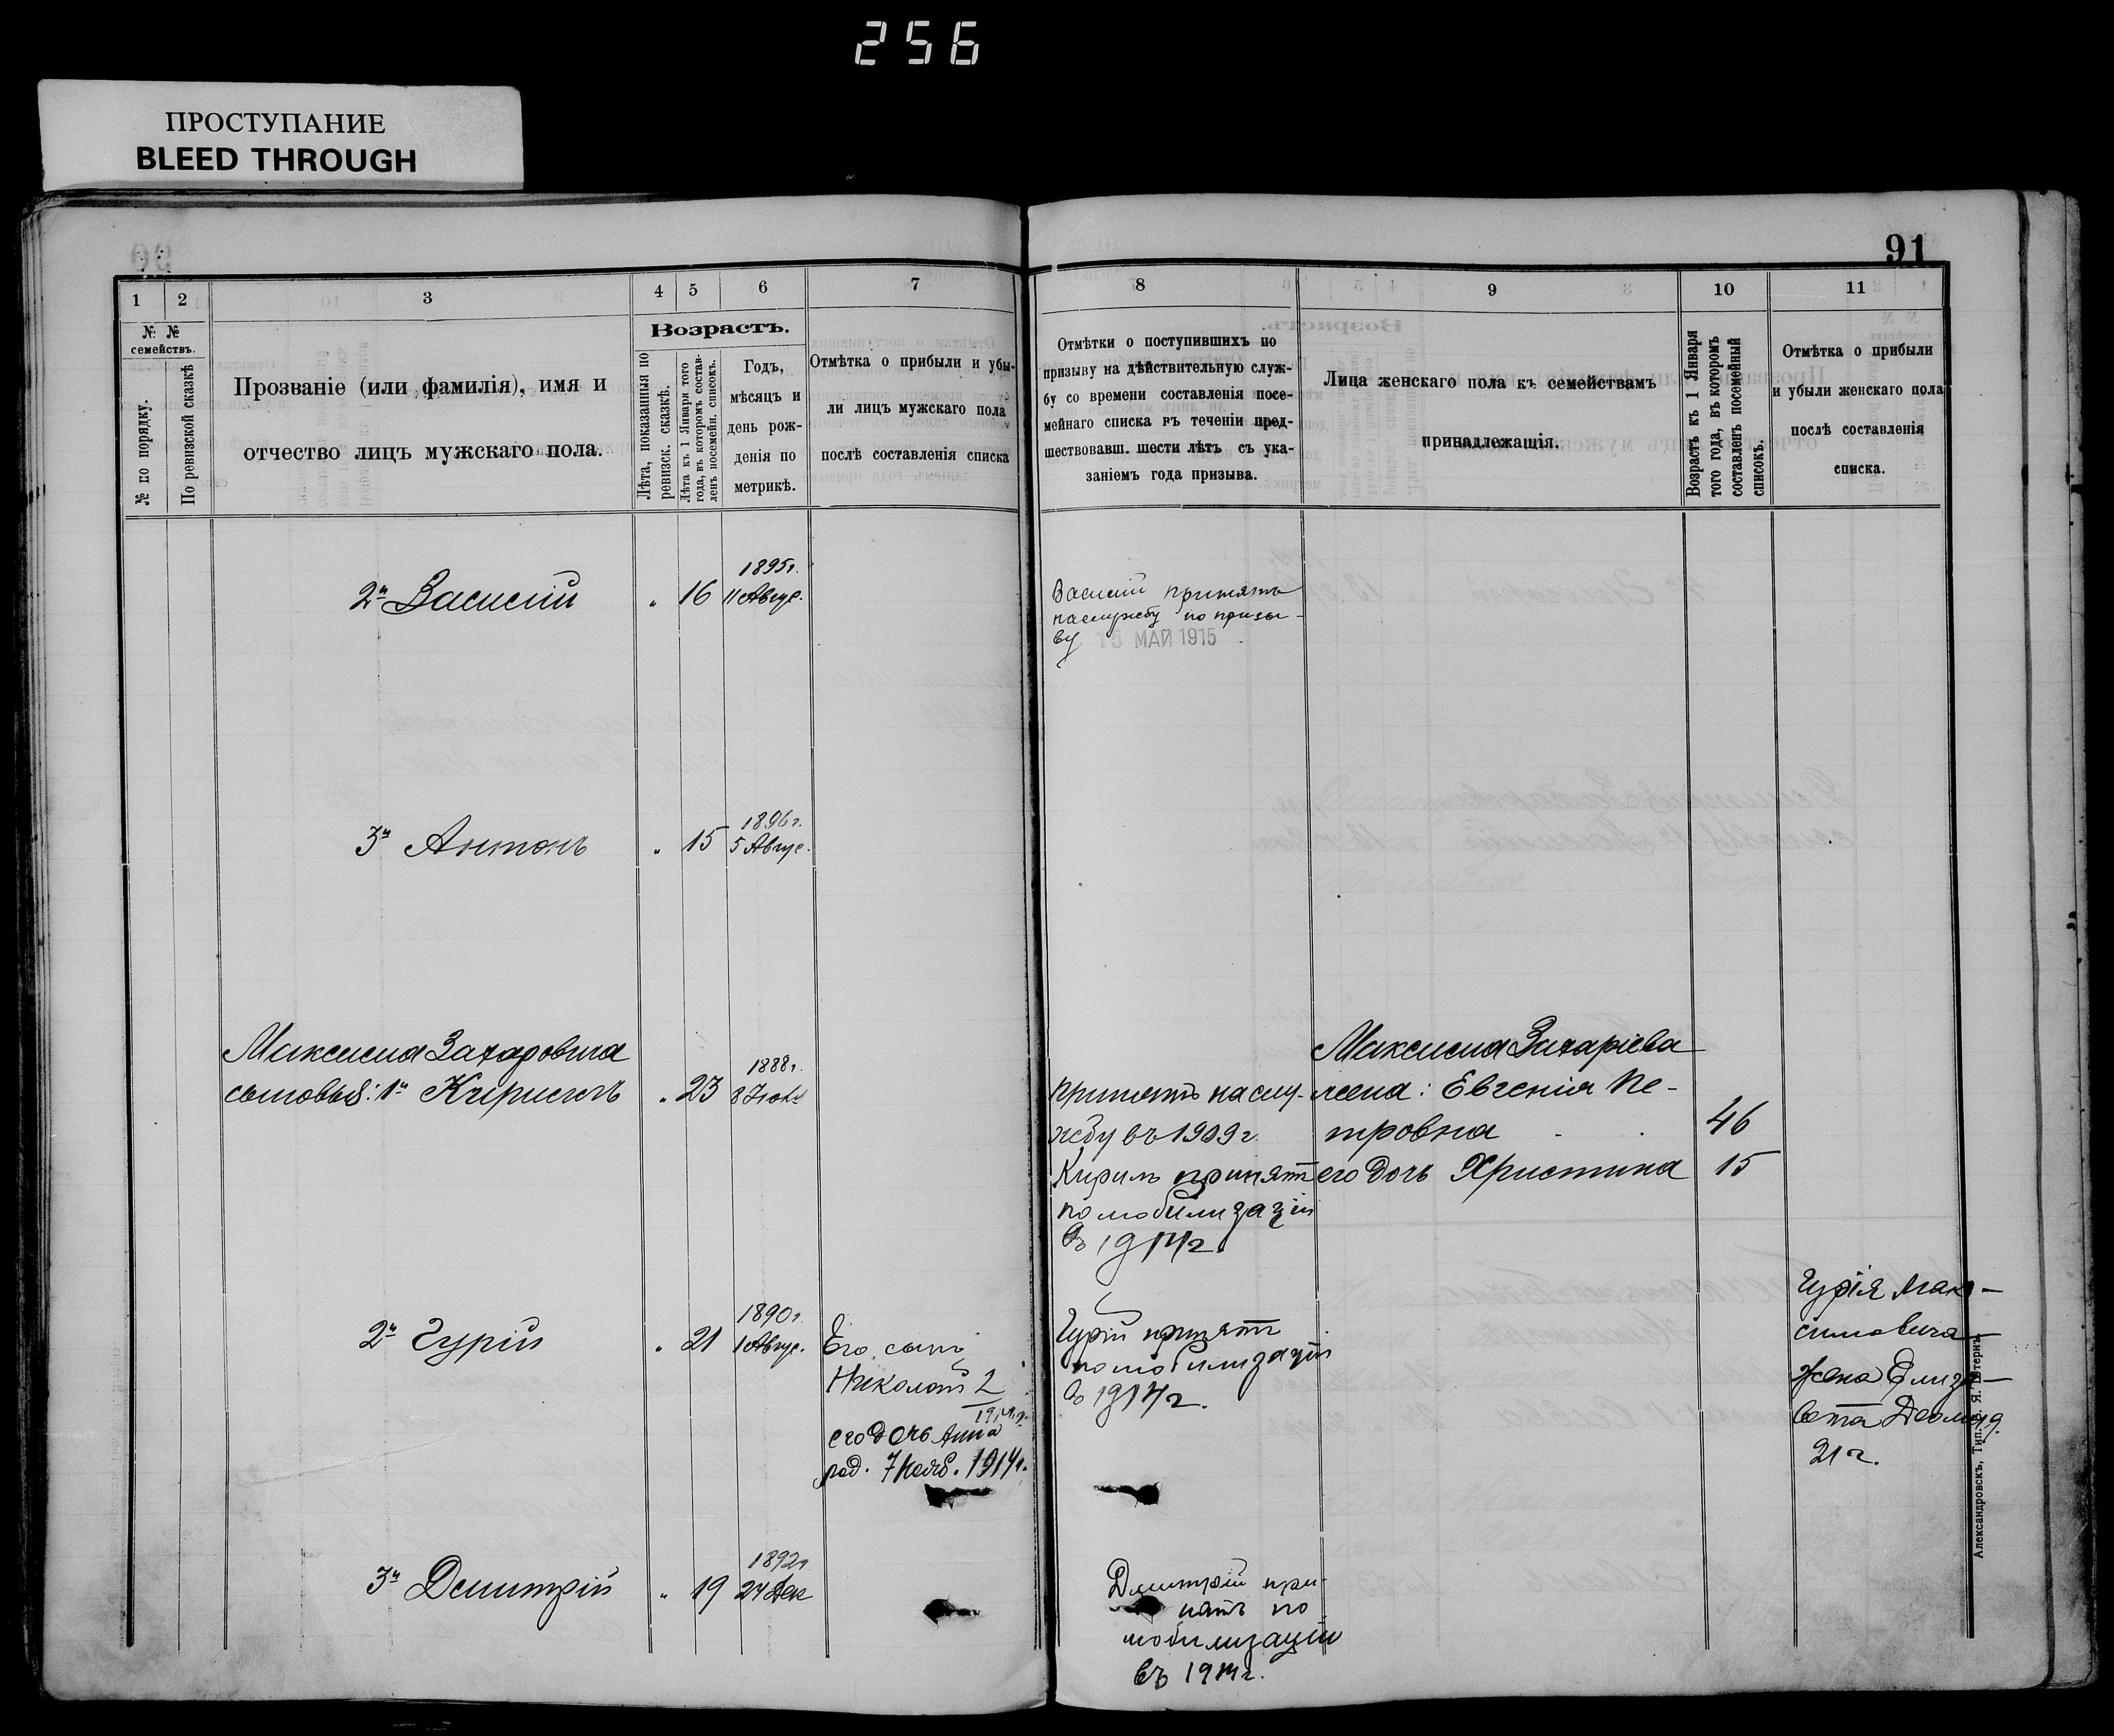 256
ПРОСТУПАНИЕ
BLEED THROUGH
91
1 2 3 4 5 6 7 8 9 10 11
№ №
семействъ.
№ по порядку.
По ревизской сказкѣ
Прозваніе (или фамилія), имя и
отчество лицъ мужскаго пола.
Возрастъ.
Лѣта, показанныя по
ревизск. сказкѣ.
Лѣта къ 1 Января того
года, въ которомъ состав-
ленъ посемейн. списокъ.
Годъ,
мѣсяцъ и
день рож-
денія по
метрикѣ.
Отмѣтка о прибыли и убы-
ли лицъ мужскаго пола
послѣ составленія списка
Отмѣтки о поступившихъ по
призыву на дѣйствительную служ-
бу со времени составленія посе-
мейнаго списка въ теченіи пред-
шествовавш. шести лѣтъ съ ука-
заніемъ года призыва.
Лица женскаго пола къ семействамъ
принадлежащія.
Возрастъ къ 1 Января
того года, въ которомъ
составленъ посемейный
списокъ.
Отмѣтка о прибыли
и убыли женскаго пола
послѣ составленія
списка.
2й Василий „ 16
1895г.
11 Авгус.
Василий принятъ
на службу по призы-
ву 15 МАЙ 1915
3й Антонъ „ 15
1896г.
5 Авгус.
Максима Захаровича
сыновья: 1й Кирилъ „ 23
1888г.
принятъ на слу-
жбу въ 1909г.
Кирилъ принятъ
по мобилизаціи
въ 1914г.
Максима Захаріева
жена: Евгенія Пе-
тровна 46
его дочь Христина 15
2й Гурій „ 21
1890г.
Авгус.
Его сынъ
Николай 2
1914г.
его дочь Анна
род. 7 Нояб. 1914г.
Гурій принятъ
по мобилизаціи
въ 1914г.
Гурія Мак-
симовича
жена Елиза-
вета
21г.
3й Дмитрій „ 19
1892г.
24 Дек
Дмитрій при-
нятъ по
мобилизаціи
въ 1914г.
Александровскъ, Тип. Я. Штернъ.